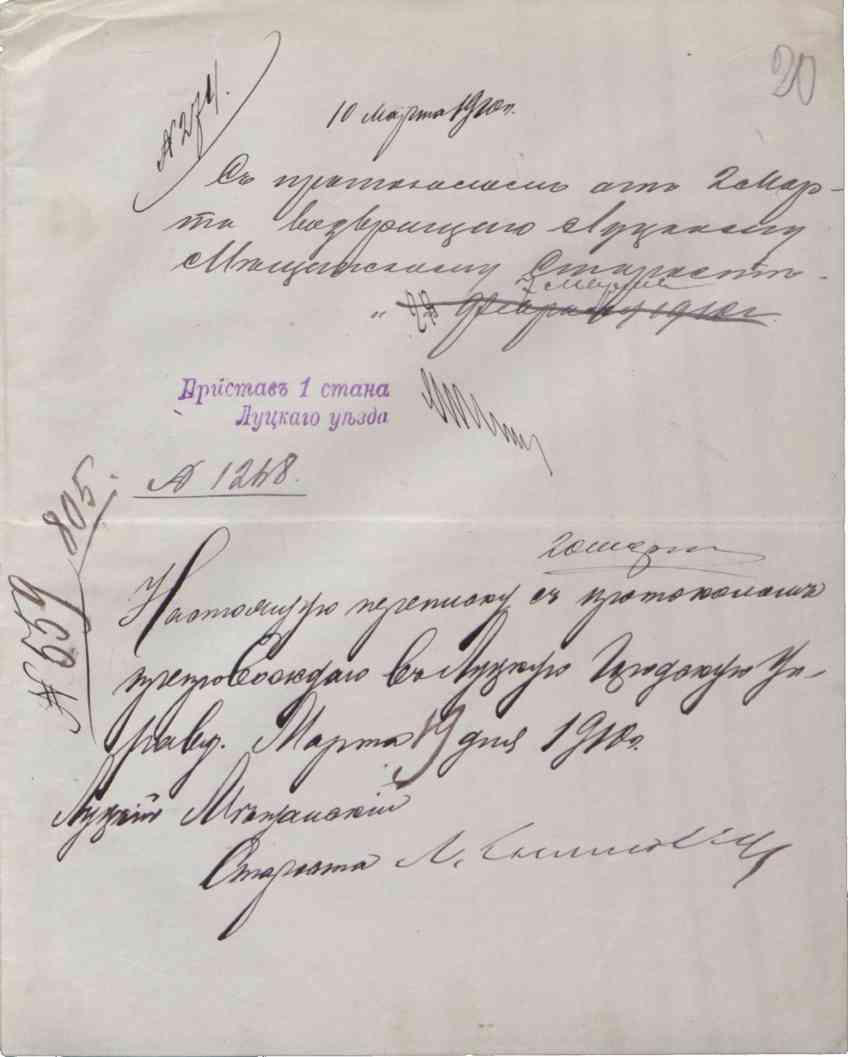 20
№ 274.
10 Марта 1910 г.
Съ протоколомъ отъ 2 Мар-
та возвращаю Луцкому
Мѣщанскому Старостѣ.
"
Февраля 1910 г.
Приставъ 1 стана
Луцкаго уѣзда
№ 1248.
805
№ 659
Настоящую переписку съ протоколомъ
препровождаю въ Луцкую Городскую Уп-
раву. Марта 19 дня 1910 г.
Луцкій Мѣщанскій
Староста